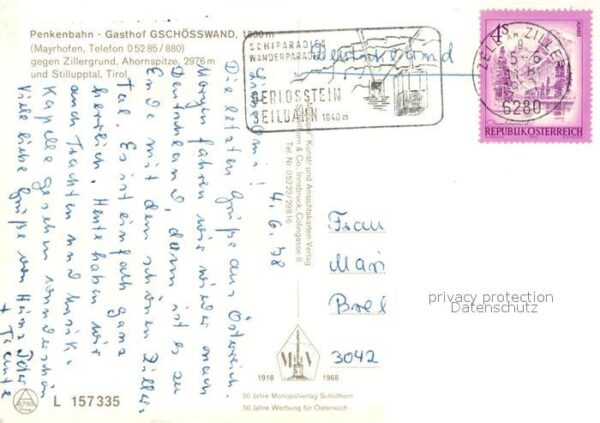 Penkenbahn - Gasthof GSCHÖSSWAND, 1800 m
(Mayrhofen, Telefon 0 52 85 / 880)
gegen Zillergrund, Ahornspitze, 2976 m
und Stillupptal, Tirol
SCHIPARADIES
WANDERPARADIES
GERLOSSTEIN
SEILBAHN 1840 m
Deutschland
ZELL AM ZILLER
6280
4S
REPUBLIK ÖSTERREICH
4.6.
Die letzten Grüße aus Österreich.
Morgen fahren wir wieder nach
Deutschland, dann ist es zu
Ende mit dem schönen Ziller-
Tal. Es ist einfach ganz
herrlich. Heute haben wir
auch Trachten und Musik-
Kapelle gesehen wunderschön
Viele liebe Grüße von Heinz Peter
Kunst- und Ansichtskarten-Verlag
Schöllhorn & Co., Innsbruck, Colingasse 6
Tel. Nr. 05222/29816
Frau
3042
privacy protection
Datenschutz
M V
1918 1968
50 Jahre Monopolverlag Schöllhorn
50 Jahre Werbung für Österreich
L 157 335